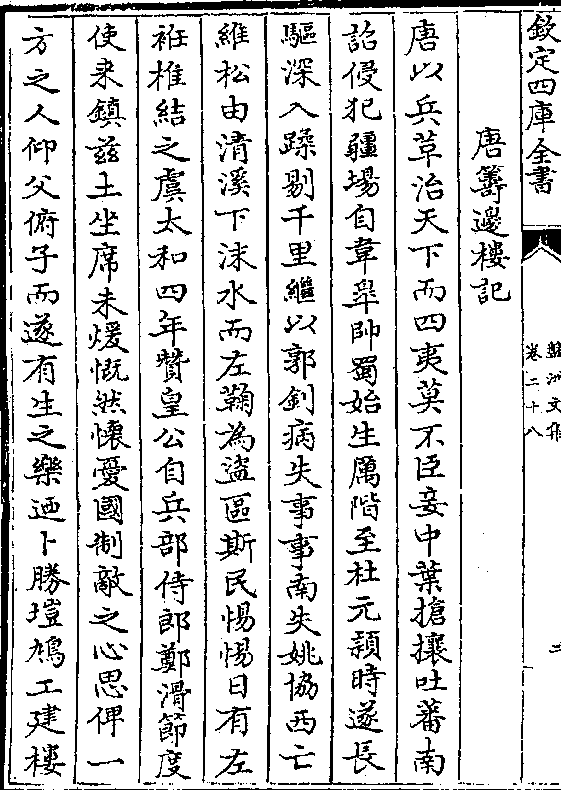 欽定四庫全書
卷二十八
唐籌邊樓記
唐以兵革治天下而四夷莫不臣妾中葉搶攘吐蕃南
詔侵犯疆場自韋臯帥蜀始生厲階至杜元頴時遂長
驅深入蹂剔千里繼以郭釗病失事事南失姚協西亡
維松由清溪下沫水而左鞠為盗區斯民惕惕日有左
袵椎結之虞太和四年贊皇公自兵部侍郎鄭滑節度
使来鎮兹土坐席未煖慨然懐憂國制敵之心思俾一
方之人仰父俯子而遂有生之樂迺卜勝塏鳩工建樓